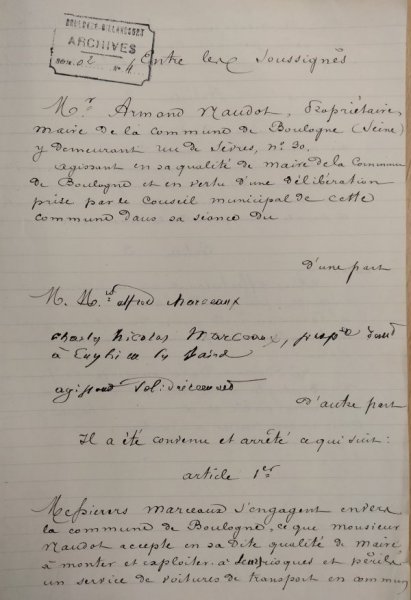 BOULOGNE-BILLANCOURT
ARCHIVES
Entre les Soussignés
Mr Armand Naudot, Propriétaire,
Maire de la commune de Boulogne (Seine)
y demeurant rue de Sèvres, no 30.
agissant en sa qualité de maire de la Commune
de Boulogne et en vertu d'une délibération
prise par le Conseil municipal de cette
commune dans sa séance du
d'une part
M. M.rs alfred Marceaux
Charles Nicolas Marceaux, propre
à Enghien les Bains
agissant Solidairement
D'autre part
Il a été convenu et arrêté ce qui suit:
article 1er
Messieurs Marceaux s'engagent envers
la commune de Boulogne, ce que monsieur
Naudot accepte en sa dite qualité de maire
à monter et exploiter à leurs risques et périls
un service de voitures de transport en commun